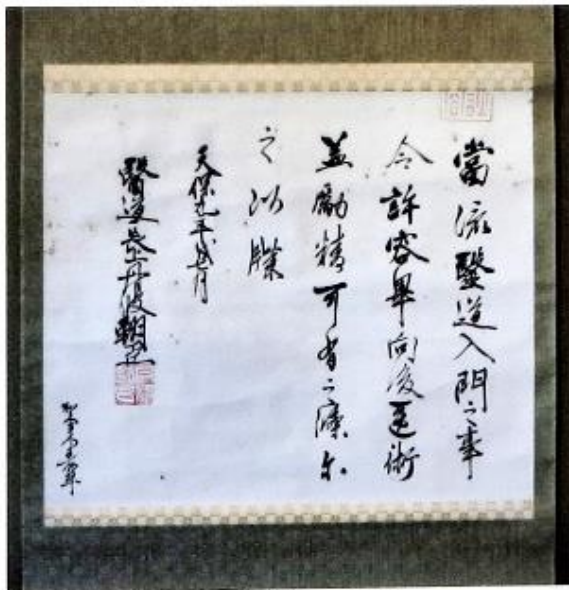 當流醫道入門之事
令許容畢向後医術
益勵精可有之
之以牒
天保九年戌七月
醫道長丹波